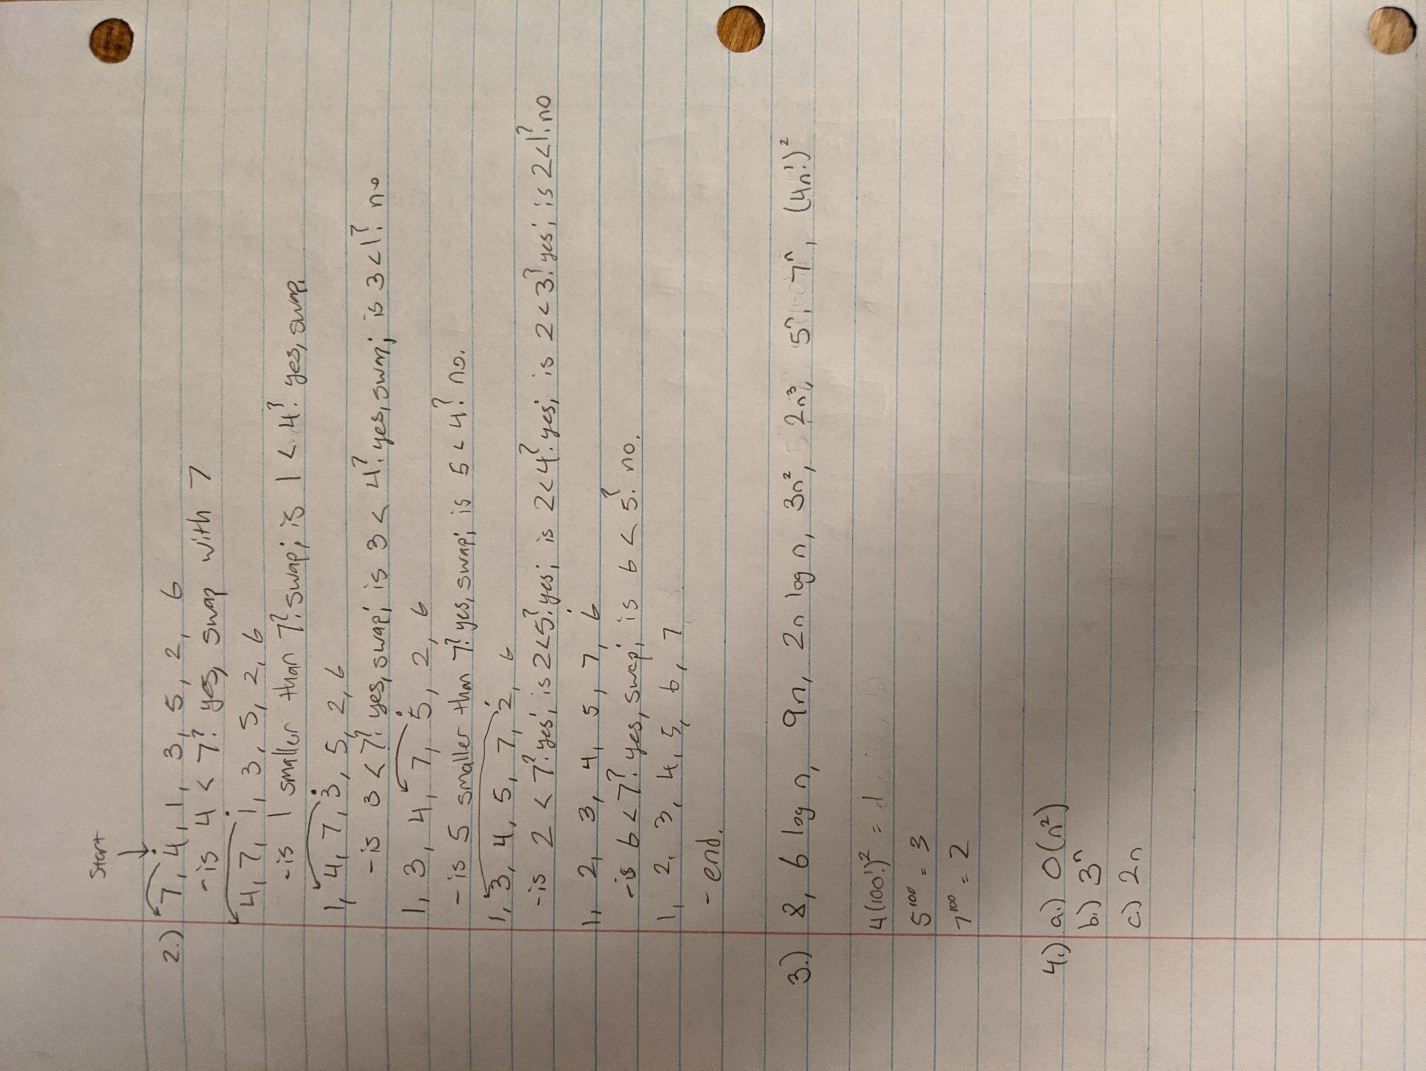 Start
2.) 7, 4, 1, 3, 5, 2, 6
- is 4 < 7? yes, swap with 7
4, 7, 1, 3, 5, 2, 6
- is 1 smaller than 7? swap; is 1 < 4? yes, swap.
1, 4, 7, 3, 5, 2, 6
- is 3 < 7? yes, swap; is 3 < 4? yes, swap; is 3 < 1? no
1, 3, 4, 7, 5, 2, 6
- is 5 smaller than 7? yes, swap; is 5 < 4? no.
1, 3, 4, 5, 7, 2, 6
- is 2 < 7? yes; is 2<5? yes; is 2<4? yes; is 2<3? yes; is 2<1? no
1, 2, 3, 4, 5, 7, 6
- is 6 < 7? yes, swap; is 6 < 5? no.
1, 2, 3, 4, 5, 6, 7
- end.
3.) 8, 6 log n, 9n, 2n log n, 3n², 2n³, 5ⁿ, 7ⁿ, (4n!)²
4(100!)² =
5¹⁰⁰ = 3
7¹⁰⁰ = 2
4.) a.) O(n²)
b.) 3ⁿ
c.) 2n